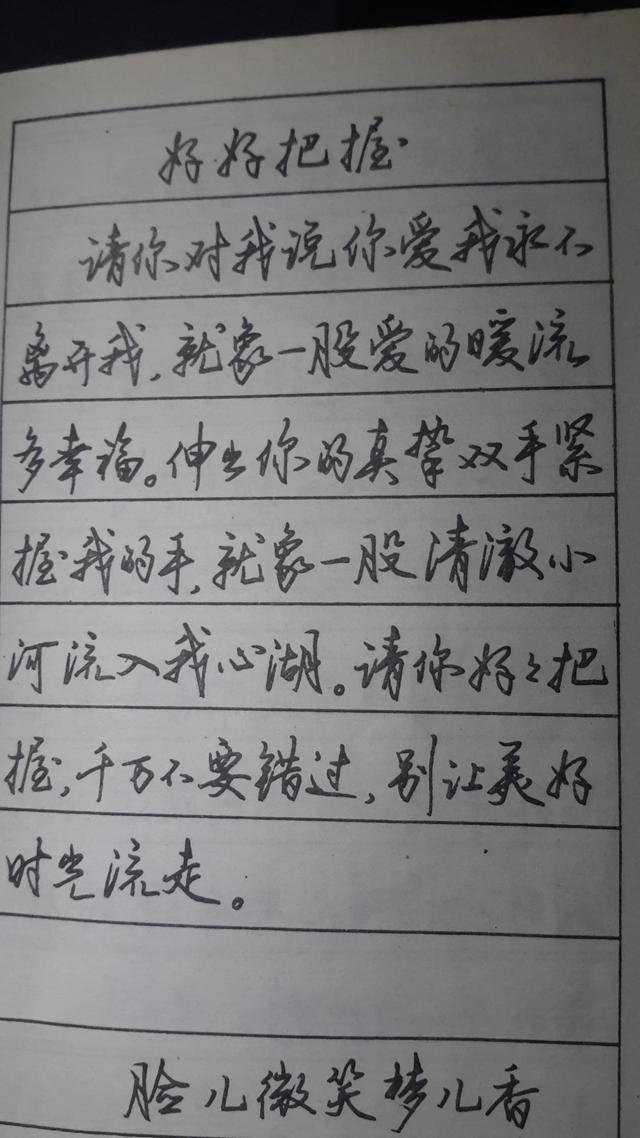 好好把握
请你对我说你爱我永不
离开我,就象一股爱的暖流
多幸福。伸出你的真挚双手紧
握我的手,就象一股清澈小
河流入我心湖。请你好々把
握,千万不要错过,别让美好
时光流走。
脸儿微笑梦儿香